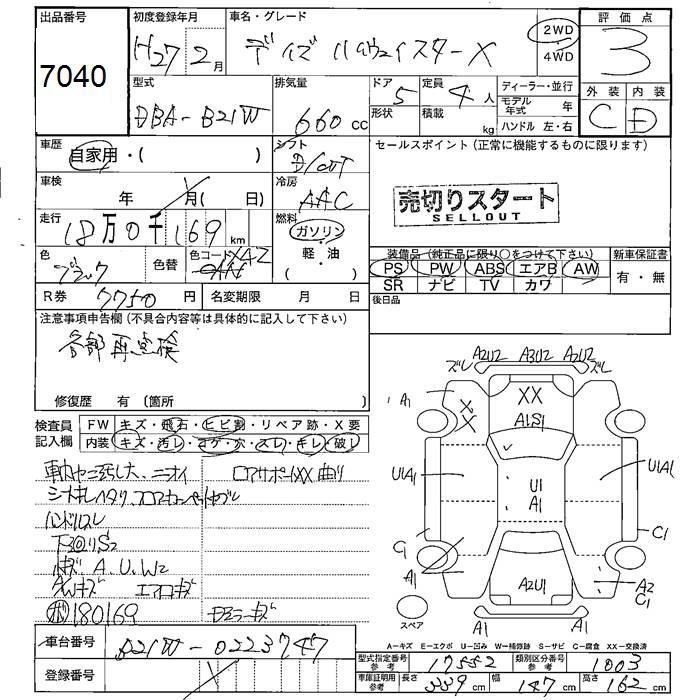 出品番号 初度登録年月 車名・グレード 評価点
7040 H27 2月 デイズ ハイウェイスターX 2WD 4WD 3
型式 排気量 ドア形状 定員 積載 ディーラー・並行 外装 内装
DBA-B21W 660cc 5 4人 kg モデル年式 年 ハンドル 左・右 C D
車歴 自家用・( ) シフト セールスポイント(正常に機能するものに限ります)
車検 年 月( 日) 冷房 AAC
売切りスタート
SELLOUT
走行 18万0千169km 燃料 ガソリン・軽・油
色 ブラック 色替 色コード 装備品(純正品に限り○をつけて下さい) 新車保証書
PS PW ABS エアB AW 有・無
SR ナビ TV カワ
R券 7750円 名変期限 月 日 後日品
注意事項申告欄(不具合内容等は具体的に記入して下さい)
各部再点検
修復歴 有(箇所 )
検査員記入欄 FW キズ・飛石・ヒビ割・リペア跡・X要
内装 キズ・汚レ・コゲ・穴・スレ・キレ・破レ
ズレ A2U2 A3U2 A2U2 ズレ
A1 XX XX A1S1
U1A1 U1 A1 U1A1
C1 C1
A1 A2U1 A2 C1
A1 A1
スペア
車内ヤニ汚レ大、ニオイ ロアサポートXX 曲り
ハンドルスレ
下回りS2
AWキズ エアロキズ
180169 ドアミラーキズ
A-キズ E-エクボ U-凹み W-補修跡 S-サビ C-腐食 XX-交換済
車台番号 B21W-0223747
型式指定番号参考 17552 類別区分番号参考 1003
登録番号
車庫証明用参考 長さ 339cm 幅 147cm 高さ 162cm